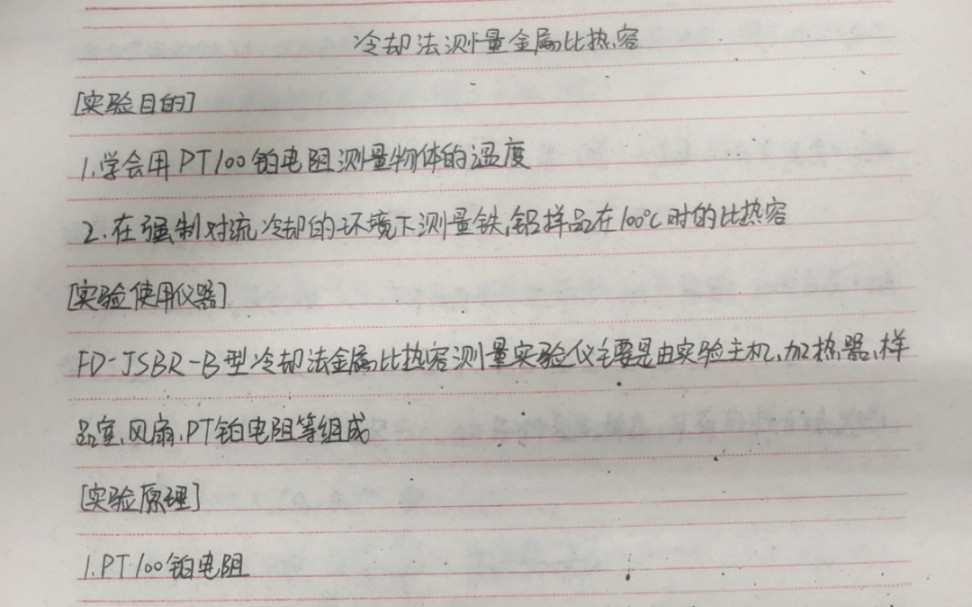 冷却法测量金属比热容
[实验目的]
1.学会用PT100铂电阻测量物体的温度
2.在强制对流冷却的环境下测量铁,铝样品在100℃时的比热容
[实验使用仪器]
FD-JSBR-B型冷却法金属比热容测量实验仪主要是由实验主机,加热器,样
品室,风扇,PT铂电阻等组成
[实验原理]
1.PT100铂电阻